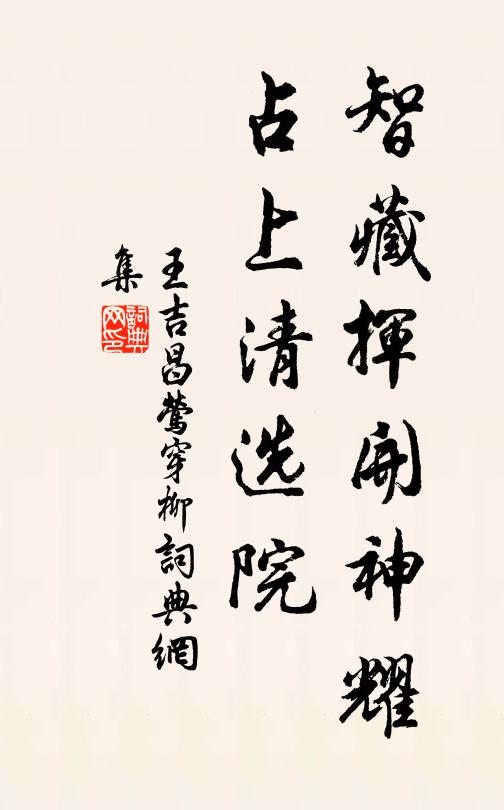 智藏揮開神耀
占上清选院
王吉昌鶯穿柳詞典網
集
詞典
网印